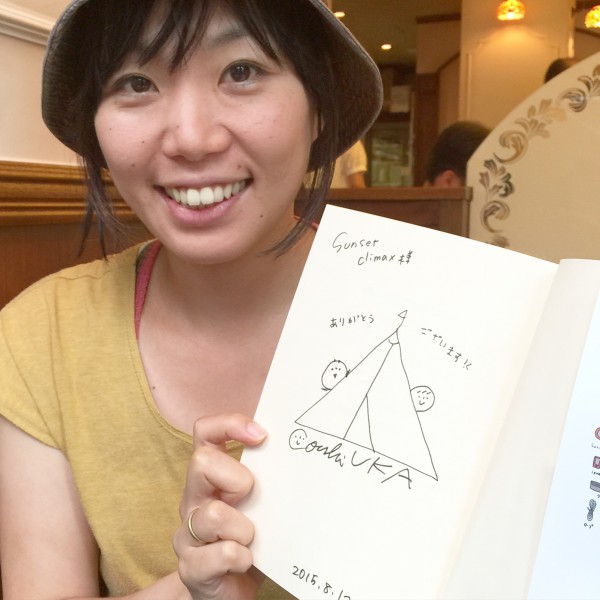 Sunset
climax様
ありがとう
ございます!!
UKA
2015.8.1